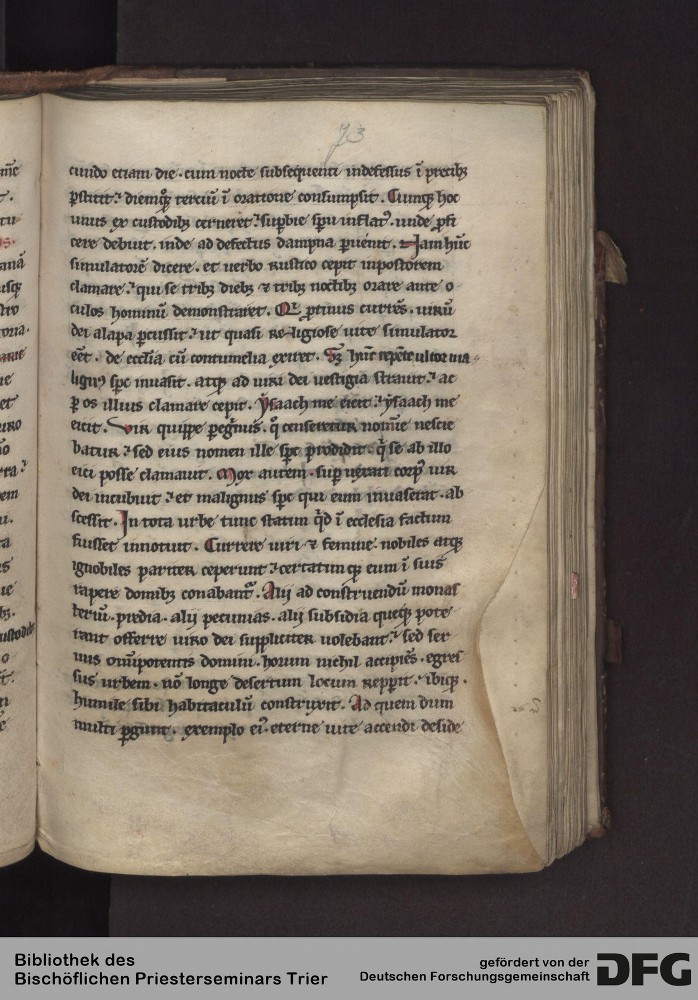 73
cundo etiam die · cum nocte subsequenti indefessus ī precibꝫ
ꝑstitit · diemqꝫ terciū ī oratione consumpsit . Cumqꝫ hoc
unus ex custodibꝫ cerneret · suꝑbie spū inflatꝰ . unde ꝓfi
cere debuit . inde ad defectus dampna ꝑuenit . Iam hūc
simulatorē dicere . et uerbo rustico cepit inpostorem
clamare · qui se tribꝫ diebꝫ ⁊ tribꝫ noctibꝫ orare ante o
culos hominū demonstraret . Qi ꝓtinus currēs . uirū
dei alapa ꝑcussit · ut quasi religiose uite simulator
eēt . de ecclīa cū contumelia exiret . Sꝫ hūc repēte ultor ma-
lignꝰ spc inuasit . atqꝫ ad uiri dei uestigia strauit · ac
ꝑ os illius clamare cepit . ysaach me eicit · ysaach me
eicit . Vir quippe ꝑegⁱnus . q̄ censeretur nomīe nescie
batur · sed eius nomen ille spc prodidit . qⁱ se ab illo
eici posse clamauit . Mox autem . suꝑ uexati corpꝰ uir
dei incubuit · et malignus spc qui eum inuaserat . ab
scessit . In tota urbe tunc statim qⁱd ī ecclesia factum
fuisset innotuit . Currere uiri ⁊ femine . nobiles atqꝫ
ignobiles pariter ceperunt · certatimqꝫ eum ī suis
rapere domibꝫ conabantᷣ . Alij ad construendū monas
teriū . predia . alij pecunias . alij subsidia queqꝫ pote
rant offerre uiro dei suppliciter uolebant · sed ser
uus omīpotentis domini . horum nichil accipiēs . egres
sus urbem . nō longe desertum locum repꝑit · ibiqꝫ .
humile sibi habitaculū construxit . Ad quem dum
multi ꝑgunt . exemplo eiꝰ . eterne uite accendi deside
Bibliothek des
Bischöflichen Priesterseminars Trier
gefördert von der
Deutschen Forschungsgemeinschaft
DFG